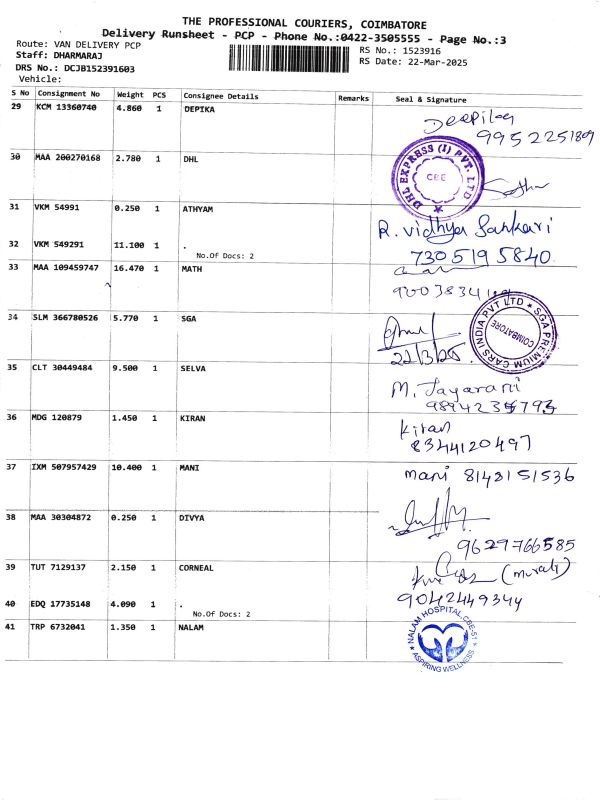 THE PROFESSIONAL COURIERS, COIMBATORE
Delivery Runsheet - PCP - Phone No.:0422-3505555 - Page No.:3
Route: VAN DELIVERY PCP
Staff: DHARMARAJ
DRS No.: DCJB152391603
Vehicle:
RS No.: 1523916
RS Date: 22-Mar-2025
S No Consignment No Weight PCS Consignee Details Remarks Seal & Signature
29 KCM 13360740 4.860 1 DEPIKA
Deepika
9952251809
30 MAA 200270168 2.780 1 DHL
DHL EXPRESS (I) PVT. LTD
CBE
31 VKM 54991 0.250 1 ATHYAM
R. Vidhya Sankari
7305195840
32 VKM 549291 11.100 1 .
No.Of Docs: 2
33 MAA 109459747 16.470 1 MATH
34 SLM 366780526 5.770 1 SGA
22/3/25
SGA PREMIUM CARS INDIA PVT LTD
COIMBATORE
35 CLT 30449484 9.500 1 SELVA
M. Jayarani
36 MDG 120879 1.450 1 KIRAN
Kiran
8344120497
37 IXM 507957429 10.400 1 MANI
mani 8148151536
38 MAA 30304872 0.250 1 DIVYA
9629766585
39 TUT 7129137 2.150 1 CORNEAL
(murali)
9042449344
40 EDQ 17735148 4.090 1 .
No.Of Docs: 2
41 TRP 6732041 1.350 1 NALAM
NALAM HOSPITAL CBE-51
ASPIRING WELLNESS